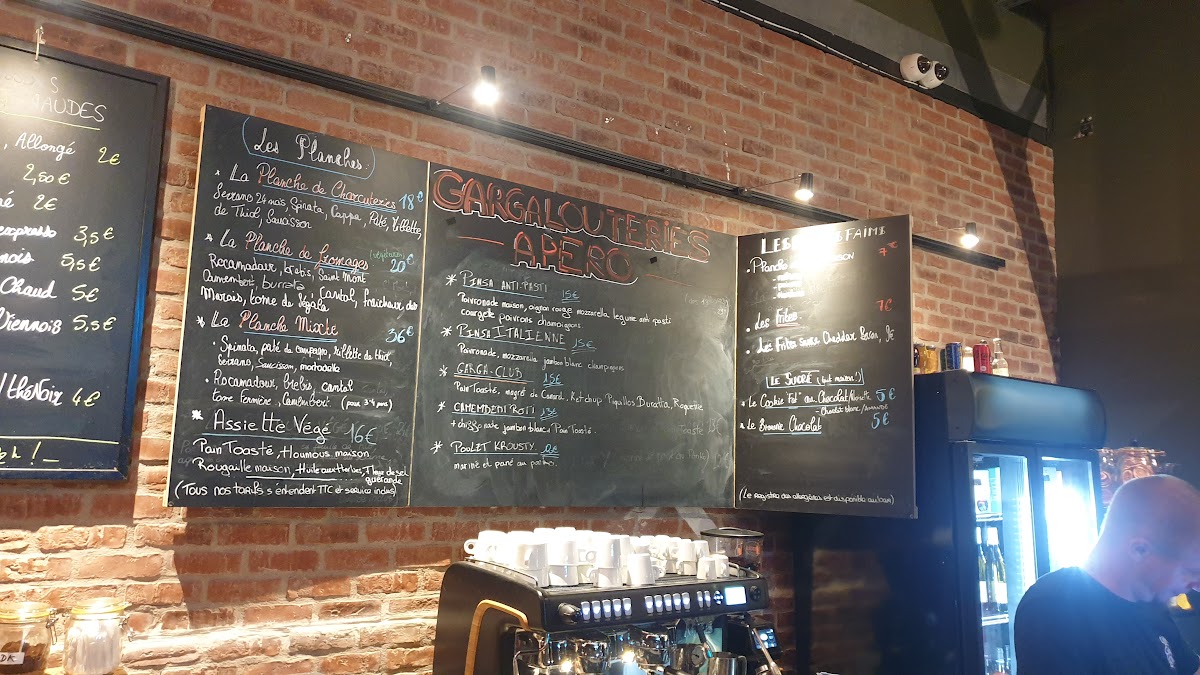 AUDES
, Allongé 2€
2,50€
2€
3,5€
nois 5,5€
Chaud 5€
Viennois 5,5€
thé Noir 4€
Les Planches:
* La Planche de Charcuteries 18€
Serrano 24 mos, Spinata, Coppa, Pâté, Rillette,
de Thiol, Saucisson
* La Planche de fromages 20€
Rocamadour, brebis, Saint Mont
Camembert, burrata
Marais, tome de Ségala, Cantal, fraicheur, duo
* La Planche Mixte 36€
• Spinata, paté de campagne, rillette de thiol,
Serrano, Saucisson, mortadella
• Rocamadour, Brebis, cantal
tome Fermière, Camembert. (pour 3-4 pers)
* Assiette Végé 16€
Pain Toasté, Houmous maison
Rougaille maison, Huile aux Herbes, Fleur de sel
guérande
(Tous nos tarifs s'entendent TTC et service inclus)
GARGALOUTERIES
- APERO -
* PINSA ANTI-PASTI 15€
Poivronade maison, oignon rouge mozzarella legume anti pasti
courgette poivrons champignons
* PINSA ITALIENNE 15€
Poivronade, mozzarella jambon blanc champignons
* GARGA-CLUB 15€
Pain Toasté, magret de Canard, Ketchup Piquillos Buratta, Roquette
* CAMEMBERT ROTI 13€
+ chiffonnade jambon blanc Pain Toasté.
* POULET KROUSTY
mariné et pané au panko.
LES FAIMS
• Planche 7€
• Les Frites. 7€
• Les Frites Sauce Cheddar Bacon,
LE SUCRÉ (fait maison!)
• Le Cookie Fat au Chocolat/Noisette 5€
- Chocolat blanc/AMANDE
• Le Brownie Chocolat 5€
(Le registre des allergènes est disponible au bar)
DK